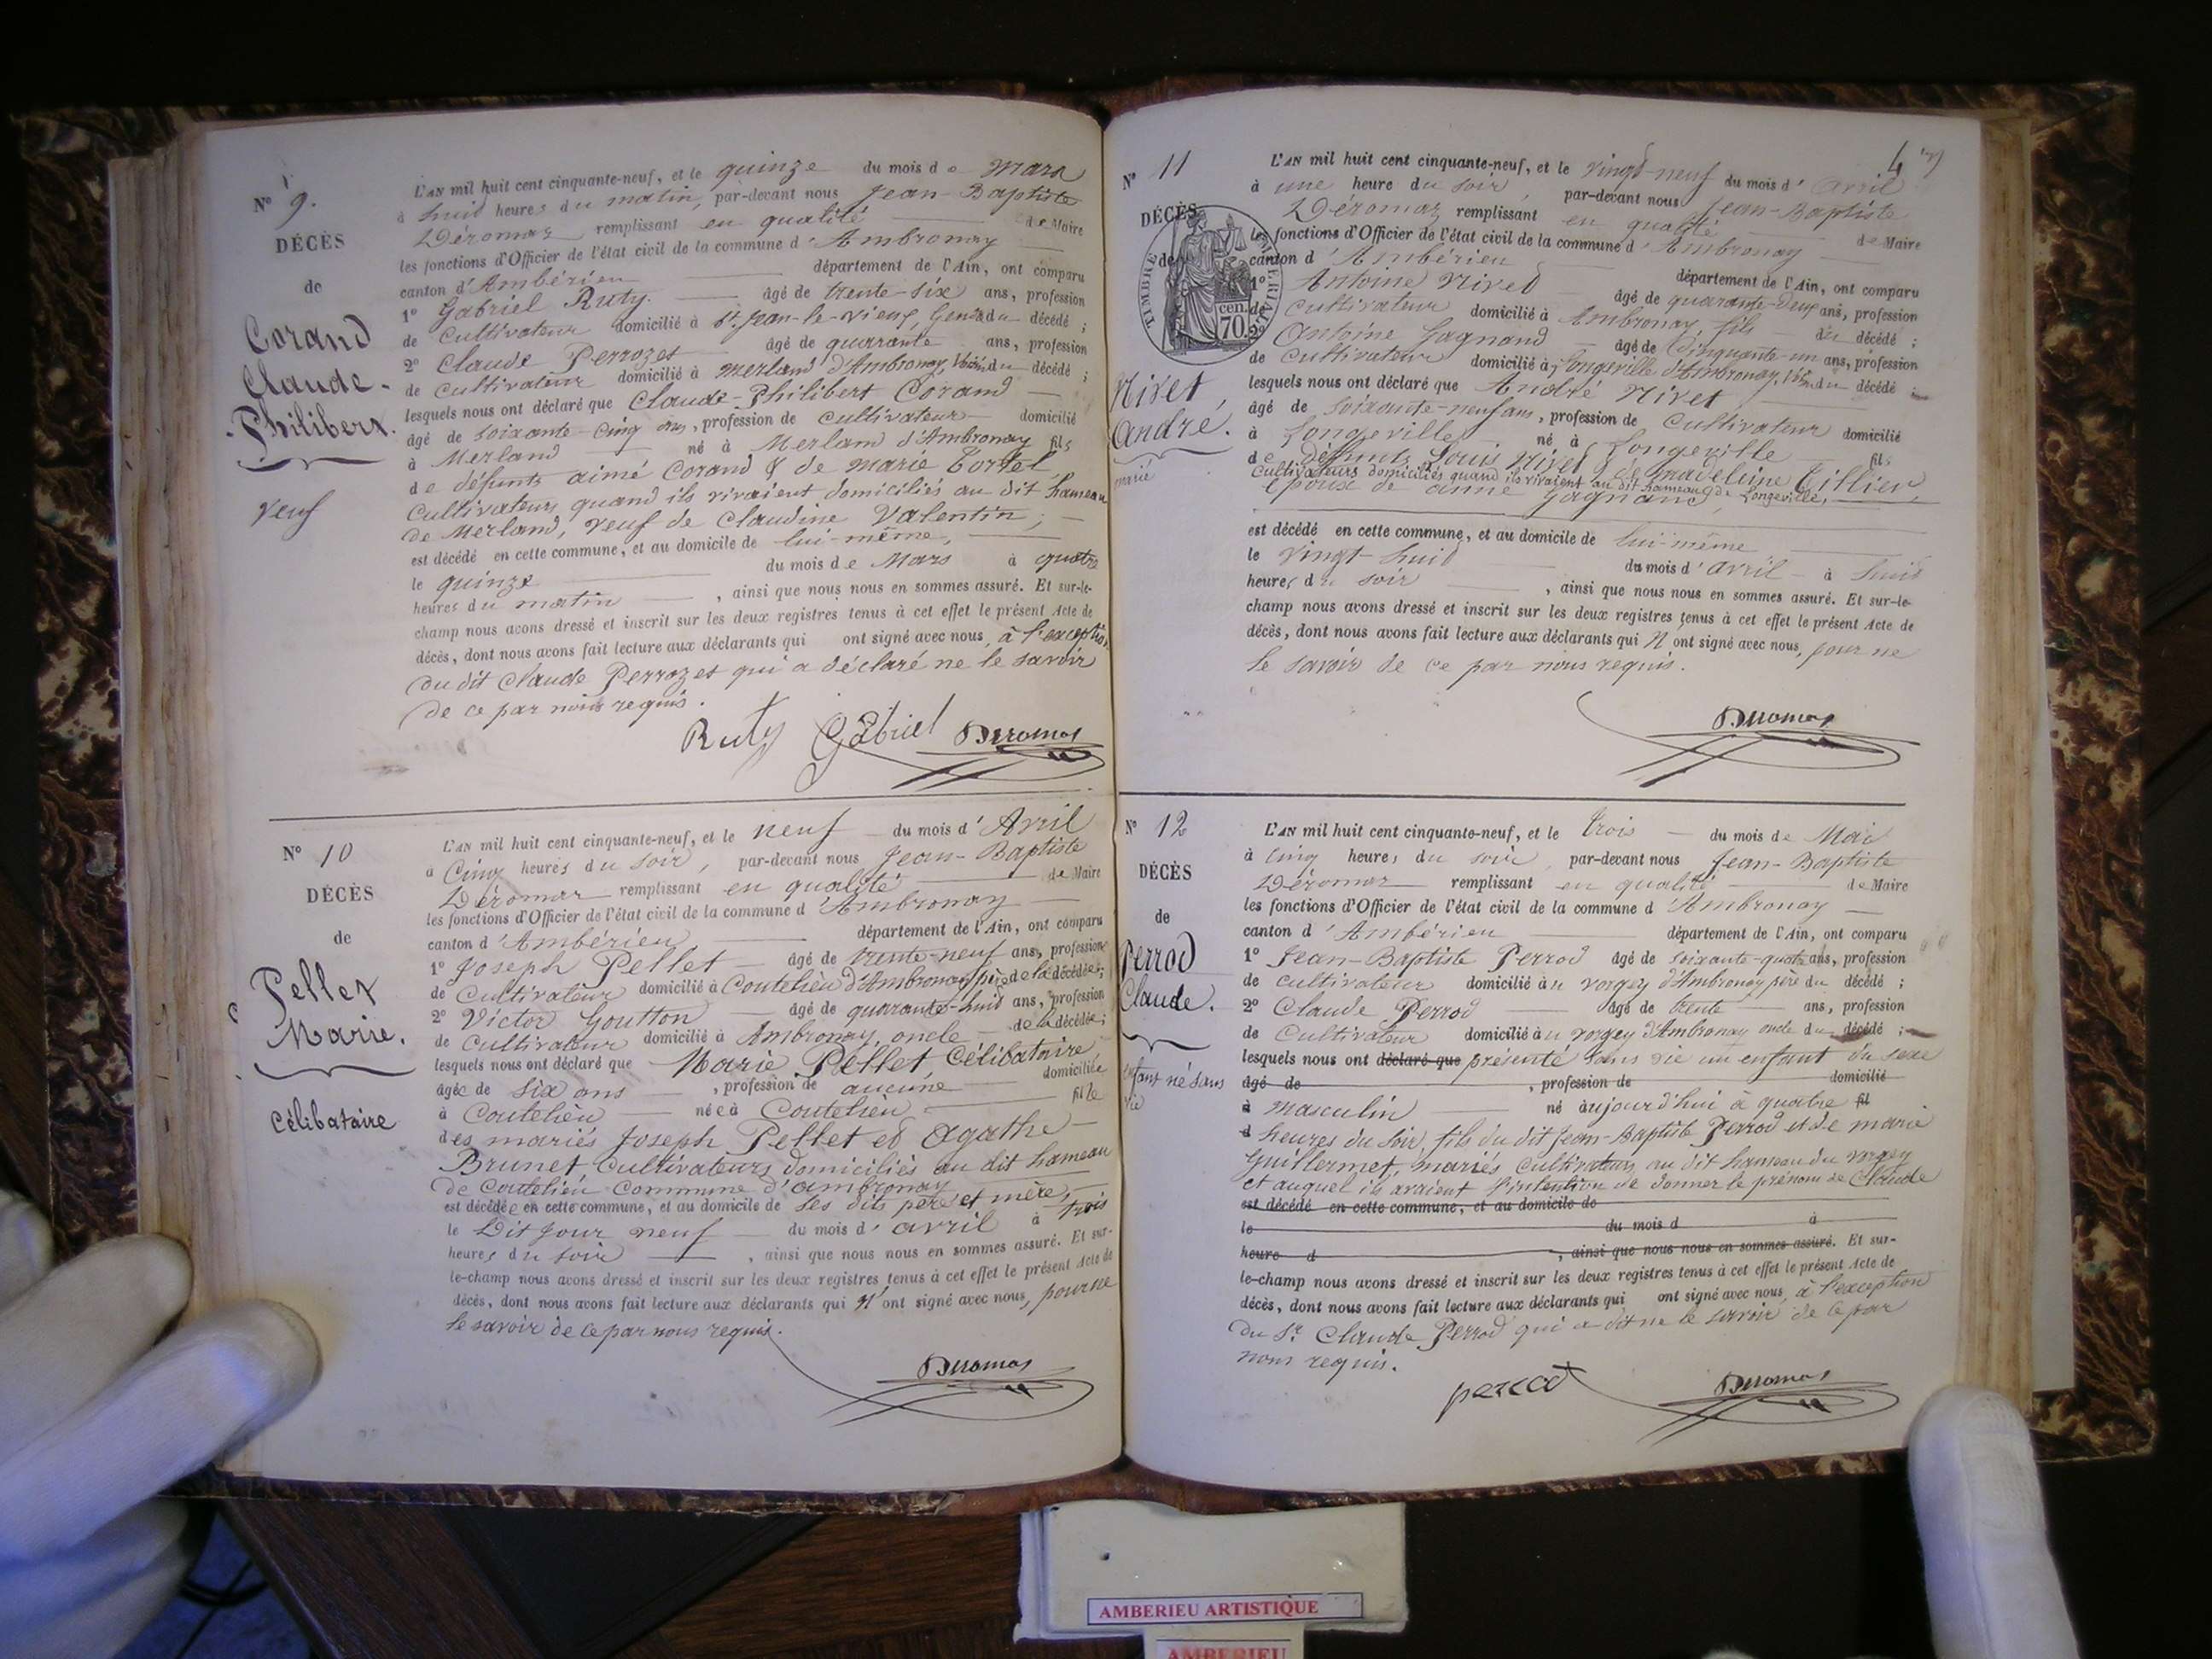 N° 9.
DÉCÈS
de
Corand
Claude-
Philibert.
veuf
L'AN mil huit cent cinquante-neuf, et le quinze du mois de Mars
à huit heures du matin, par-devant nous Jean-Baptiste
Déromas remplissant en qualité de Maire
les fonctions d'Officier de l'état civil de la commune d'Ambronay
canton d'Ambérieu département de l'Ain, ont comparu
1° Gabriel Ruty. âgé de trente-six ans, profession
de Cultivateur domicilié à St. Jean-le-Vieux, Gendre du décédé ;
2° Claude Perrozet âgé de quarante ans, profession
de Cultivateur domicilié à Merland d'Ambronay, Voisin du décédé ;
lesquels nous ont déclaré que Claude-Philibert Corand
âgé de soixante-cinq ans, profession de Cultivateur domicilié
à Merland né à Merland d'Ambronay fils
de défunts aimé Corand & de Marie Tortel,
Cultivateurs quand ils vivaient domiciliés au dit hameau
de Merland, veuf de Claudine Valentin ;
est décédé en cette commune, et au domicile de lui-même,
le quinze du mois de Mars à quatre
heures du matin , ainsi que nous nous en sommes assuré. Et sur-le-
champ nous avons dressé et inscrit sur les deux registres tenus à cet effet le présent Acte de
décès, dont nous avons fait lecture aux déclarants qui ont signé avec nous, à l'exception
du dit Claude Perrozet qui a déclaré ne le savoir
de ce par nous requis.
Ruty Gabriel Déromas
N° 10
DÉCÈS
de
Pellet
Marie.
célibataire
L'AN mil huit cent cinquante-neuf, et le neuf du mois d'Avril
à Cinq heures du soir, par-devant nous Jean-Baptiste
Déromas remplissant en qualité de Maire
les fonctions d'Officier de l'état civil de la commune d'Ambronay
canton d'Ambérieu département de l'Ain, ont comparu
1° Joseph Pellet âgé de trente-neuf ans, profession
de Cultivateur domicilié à Coutelieu d'Ambronay père de la décédée ;
2° Victor Goutton âgé de quarante-huit ans, profession
de Cultivateur domicilié à Ambronay, oncle de la décédée ;
lesquels nous ont déclaré que Marie Pellet Célibataire
âgée de six ans , profession de aucune domiciliée
à Coutelieu née à Coutelieu fille
des mariés Joseph Pellet et Agathe
Brunet, Cultivateurs domiciliés au dit hameau
de Coutelieu commune d'Ambronay
est décédée en cette commune, et au domicile de ses dits père et mère,
le Dit jour neuf du mois d'avril à trois
heures du soir , ainsi que nous nous en sommes assuré. Et sur-
le-champ nous avons dressé et inscrit sur les deux registres tenus à cet effet le présent Acte de
décès, dont nous avons fait lecture aux déclarants qui n'ont signé avec nous, pour ne
le savoir de ce par nous requis.
Déromas
N° 11
DÉCÈS
de
TIMBRE IMPÉRIAL
70 cen.
Nivet,
André.
marié
L'AN mil huit cent cinquante-neuf, et le vingt-neuf du mois d'avril
à une heure du soir par-devant nous Jean-Baptiste
Déromas remplissant en qualité de Maire
les fonctions d'Officier de l'état civil de la commune d'Ambronay
canton d'Ambérieu département de l'Ain, ont comparu
1° Antoine Nivet âgé de quarante-deux ans, profession
de Cultivateur domicilié à Ambronay, fils du décédé ;
2° Antoine Gagnand âgé de Cinquante-un ans, profession
de Cultivateur domicilié à Longeville d'Ambronay, Voisin du décédé ;
lesquels nous ont déclaré que André Nivet
âgé de soixante-neuf ans, profession de Cultivateur domicilié
à Longeville né à Longeville fils
de défunts Louis Nivet & de Madeleine Tillier,
Cultivateurs domiciliés quand ils vivaient au dit hameau de Longeville,
époux de anne Gagnand
est décédé en cette commune, et au domicile de lui-même
le vingt-huit du mois d'avril à huit
heures du soir , ainsi que nous nous en sommes assuré. Et sur-le-
champ nous avons dressé et inscrit sur les deux registres tenus à cet effet le présent Acte de
décès, dont nous avons fait lecture aux déclarants qui n'ont signé avec nous, pour ne
le savoir de ce par nous requis.
Déromas
N° 12
DÉCÈS
de
Perrod
Claude.
enfant né sans
vie
L'AN mil huit cent cinquante-neuf, et le trois du mois de Mai
à cinq heures du soir par-devant nous Jean-Baptiste
Déromas remplissant en qualité de Maire
les fonctions d'Officier de l'état civil de la commune d'Ambronay
canton d'Ambérieu département de l'Ain, ont comparu
1° Jean-Baptiste Perrod âgé de soixante-quatre ans, profession
de cultivateur domicilié au vorgey d'Ambronay père du décédé ;
2° Claude Perrod âgé de trente ans, profession
de Cultivateur domicilié au vorgey d'Ambronay oncle du décédé ;
lesquels nous ont déclaré que présenté sans vie un enfant du sexe
âgé de , profession de domicilié
à masculin né aujourd'hui à quatre fil
d heures du soir, fils du dit Jean-Baptiste Perrod et de marie
Guillermet, mariés cultivateurs au dit hameau du vorgey
et auquel ils avaient l'intention de donner le prénom de Claude
est décédé en cette commune, et au domicile de
le du mois d à
heure d , ainsi que nous nous en sommes assuré. Et sur-
le-champ nous avons dressé et inscrit sur les deux registres tenus à cet effet le présent Acte de
décès, dont nous avons fait lecture aux déclarants qui ont signé avec nous, à l'exception
du Sr. Claude Perrod qui a dit ne le savoir de ce par
nous requis.
perrod Déromas
AMBERIEU ARTISTIQUE
AMBERIEU